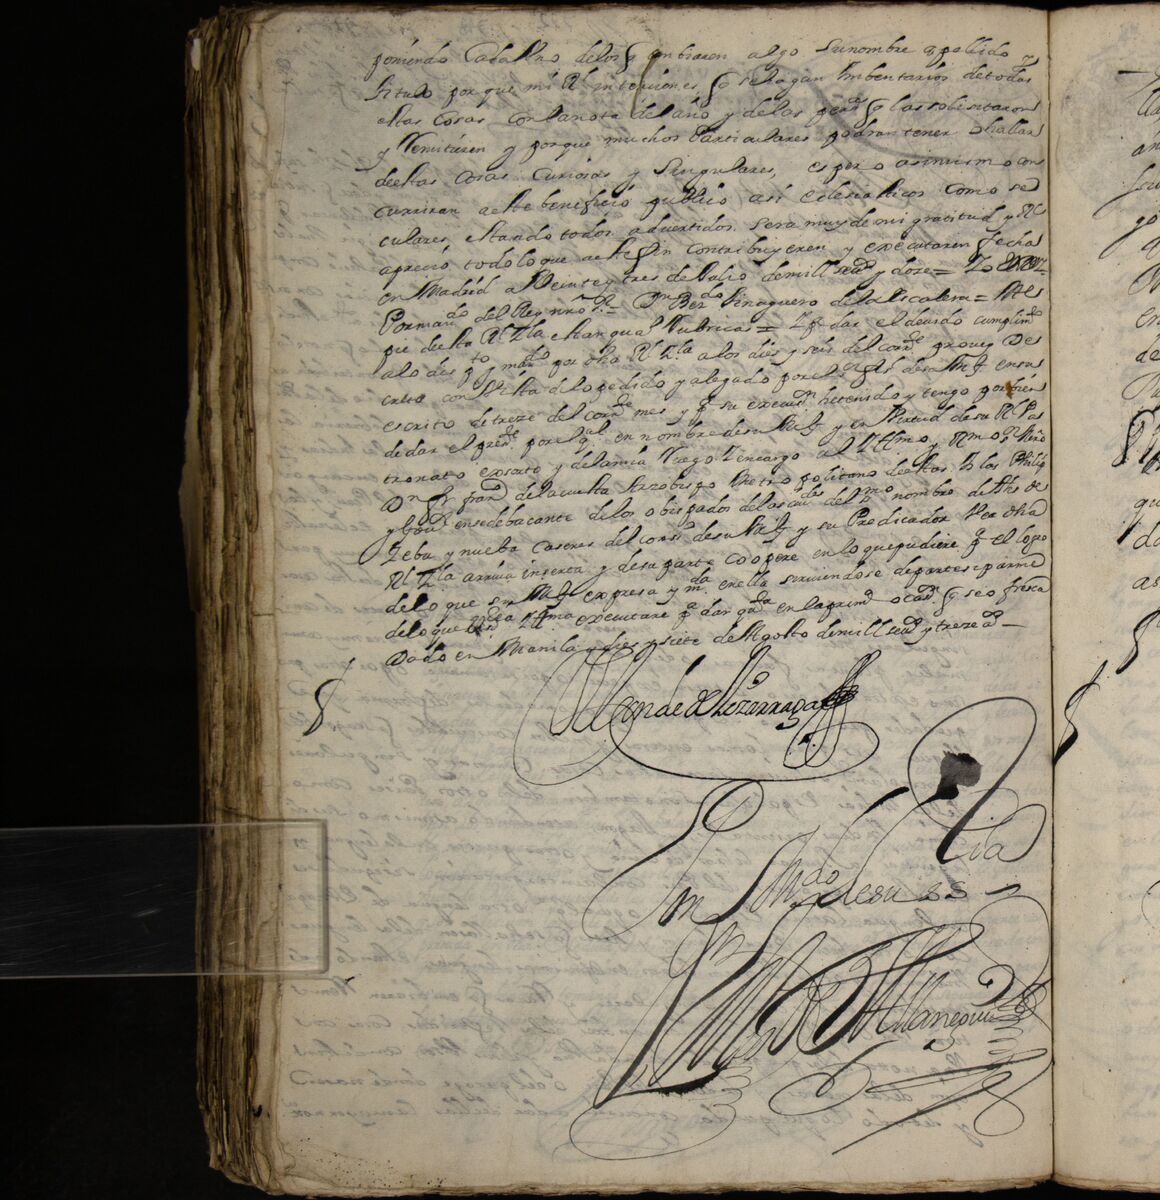 poniendo cada uno delos q̃ embiaren algo su nombre apellido y
titulo porque mi Rl intencion es q̃ se hagan Imbentarios de todas
estas Cosas con la nota del año y de las pers.s q̃ las solisitaron
y Remitieren y porque muchos Particulares podran tener o hallar
destas Cosas Curiosas y Singulares, espero asimismo con
curriran a este beneficio publico asi eclesiasticos como se
culares, estando todos advertidos sera muy de mi gratitud y Rl
aprecio todo lo que a este fin contribuyeren y executaren fecha
en Madrid a Veinte y tres de Julio de mill setz.s y doze = Yo El Rey
Por mand.do del Rey nro s.r = Dn Ber.do Tinaguero de la Escalera = Al
pie de esta Rl Z.la estan quatro Rubricas = Y p.a dar el devido cumplim.to
a lo dis p.to y man.do por dha Rl Z.la a los dies y seis del corr.te provey De
creto con Vista de lo pedido y alegado por el s.r fiscal de su Mg.d en su
escrito de treze del corr.te mes y p.a su execus.n he tenido y tengo por bien
de dar el pres.te por el q.l en nombre de su Mg.d y en Virtud de su Rl Pa
tronato exsorto y de la mia Ruego y encargo al Yll.mo y R.mo S.r Mro
D.n fr. fran.co de la cuesta Arzobispo Metropolitano de estas Yslas Philip.s
y Gov.r en sede bacante de los obispados de las ciu.des del S.mo nombre de Jhs de
Zebu y nueba Caseres del cons.o de su Mg.d y su Predicador Vea dha
Rl Z.la arriva inserta y de su parte coopere en lo que pudiere p.a el logro
de lo que su Mg.d expresa y m.da en ella sirviendose de partisiparme
de lo que Yll.ma executare p.a dar q.ta en la prim.a ocas.n q̃ se ofresca
Dado en Manila y dies y siete de Agosto de mill setz.s y treze a.s —
El Conde de Lizarraga
Por Mdo de su S.ria